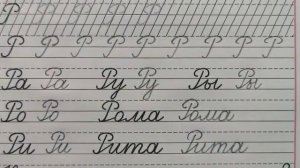 Р Р Р Р Р Р
Р Р Р Р Р Р Р Р Р Р
Ра Ра Ру Ру Ры Ры
Ро Ро Рома Рома
Ри Ри Рита Рита